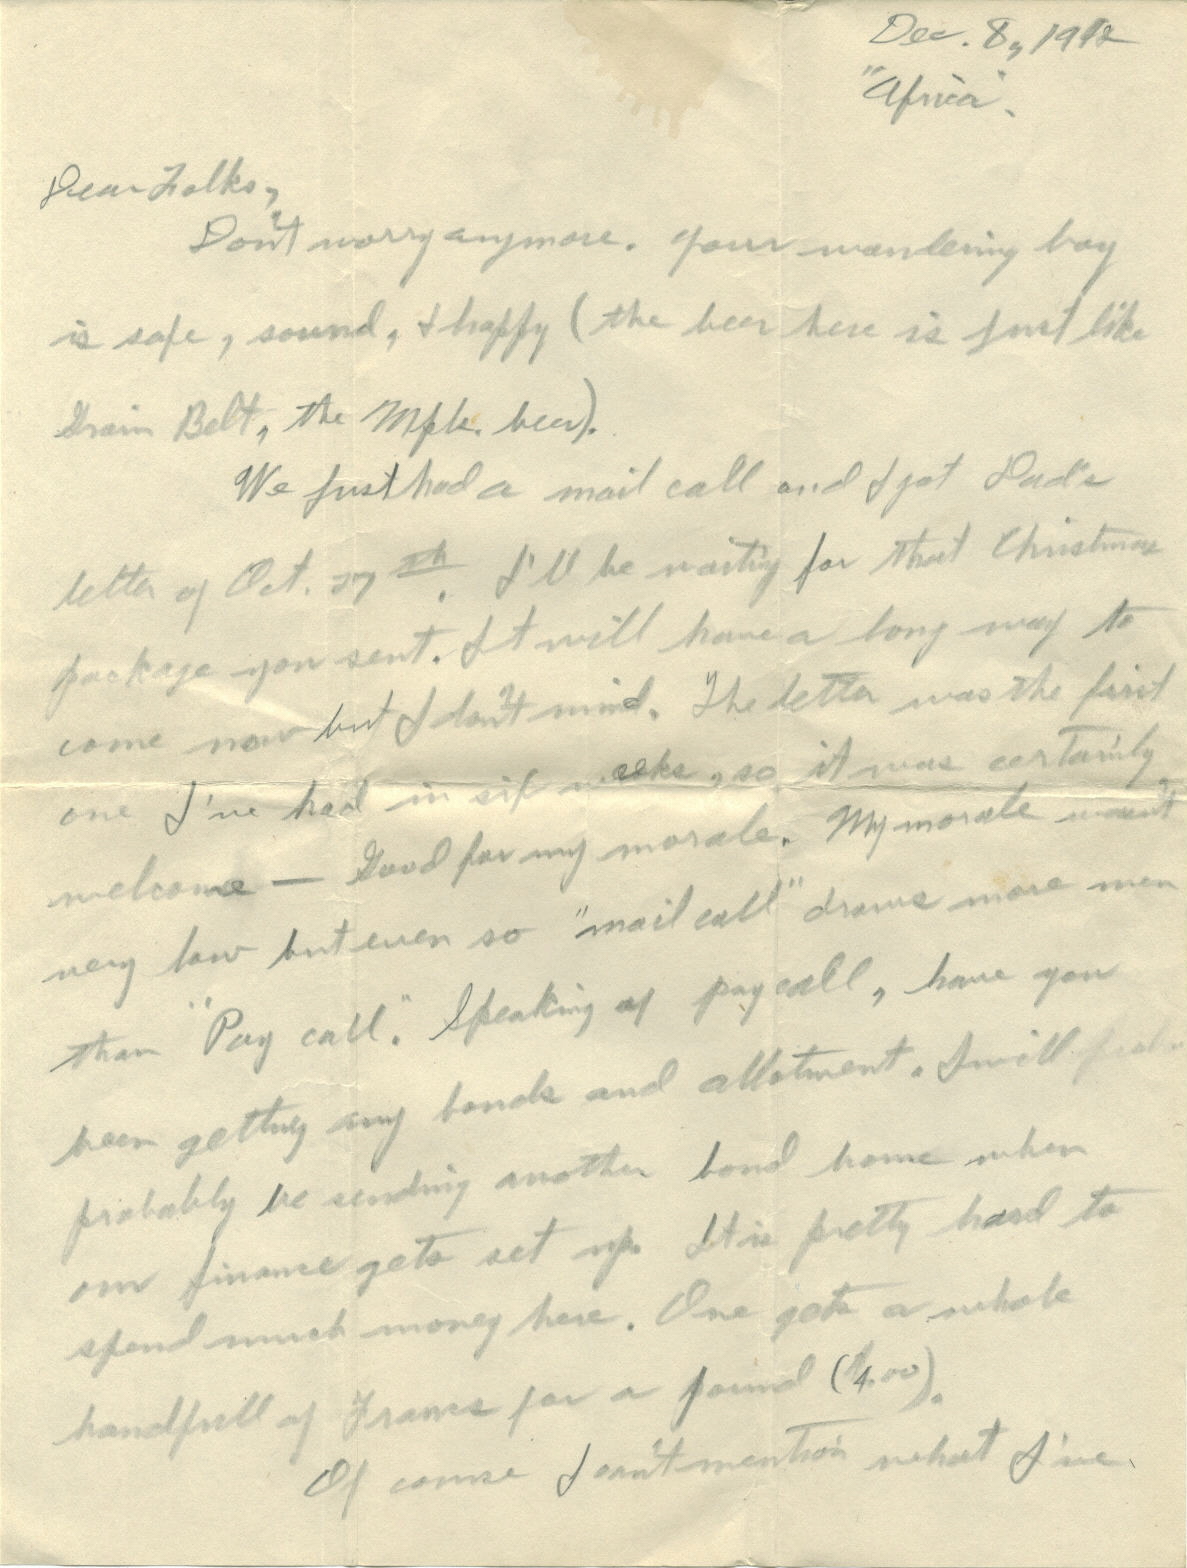 Dec. 8, 1942
"Africa".
Dear Folks,
Don't worry anymore. Your wandering boy
is safe, sound, & happy (the beer here is just like
Grain Belt, the Mpls. beer).
We just had a mail call and I got Dad's
letter of Oct. 27th. I'll be waiting for that Christmas
package you sent. It will have a long way to
come now but I don't mind. The letter was the first
one I've had in six weeks, so it was certainly
welcome — Good for my morale. My morale wasn't
very low but even so "mail call" draws more men
than "Pay call". Speaking of pay call, have you
been getting any bonds and allotment. I will prob-
probably be sending another bond home when
our finance gets set up. It is pretty hard to
spend much money here. One gets a whole
handfull of Francs for a pound ($4.00).
Of course I can't mention what I've